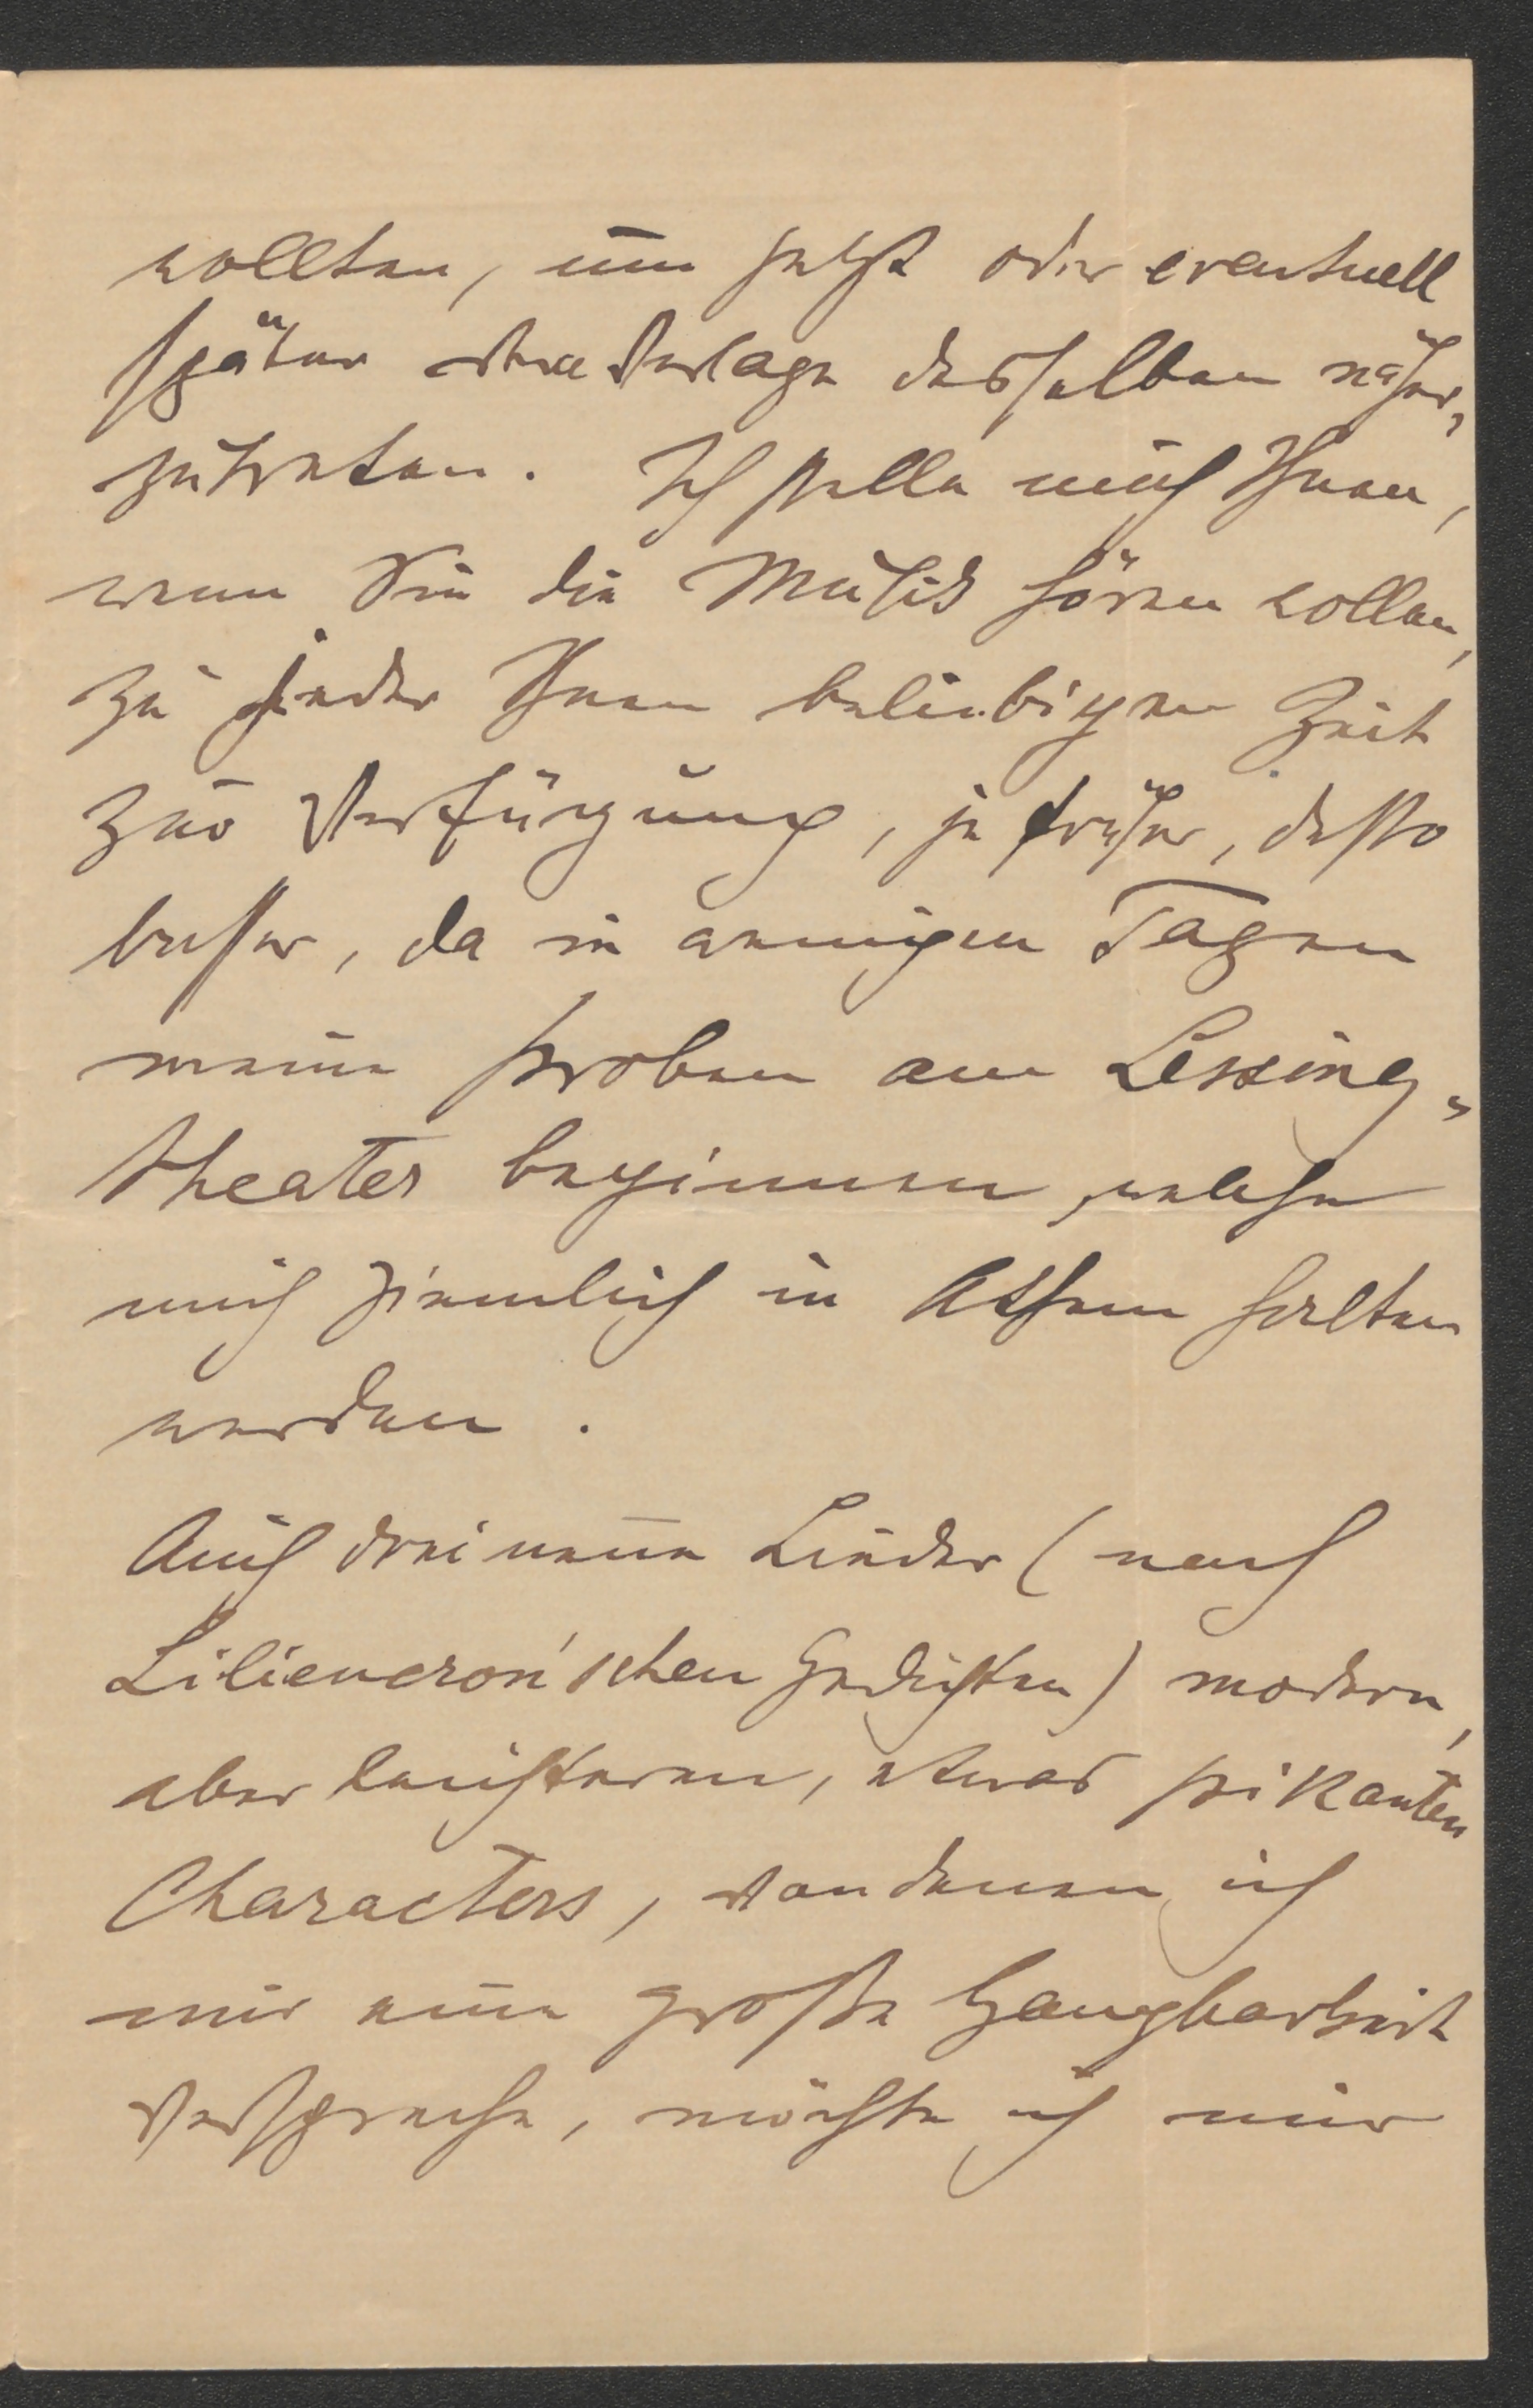 wollten, um jetzt oder eventuell
später dem Verlage desselben näher-
zutreten. Ich stelle mich Ihnen,
wenn Sie die Musik hören wollen,
zu jeder Ihnen beliebigen Zeit
zur Verfügung, je früher, desto
besser, da in wenigen Tagen
meine Proben am Lessing-
theater beginnen, welche
mich ziemlich in Athem halten
werden.
Auch drei neue Lieder (nach
Liliencron'schen Gedichten) modern,
aber leichteren, etwas pikanten
Characters, von denen ich
mir eine große Gangbarkeit
verspreche, möchte ich mir